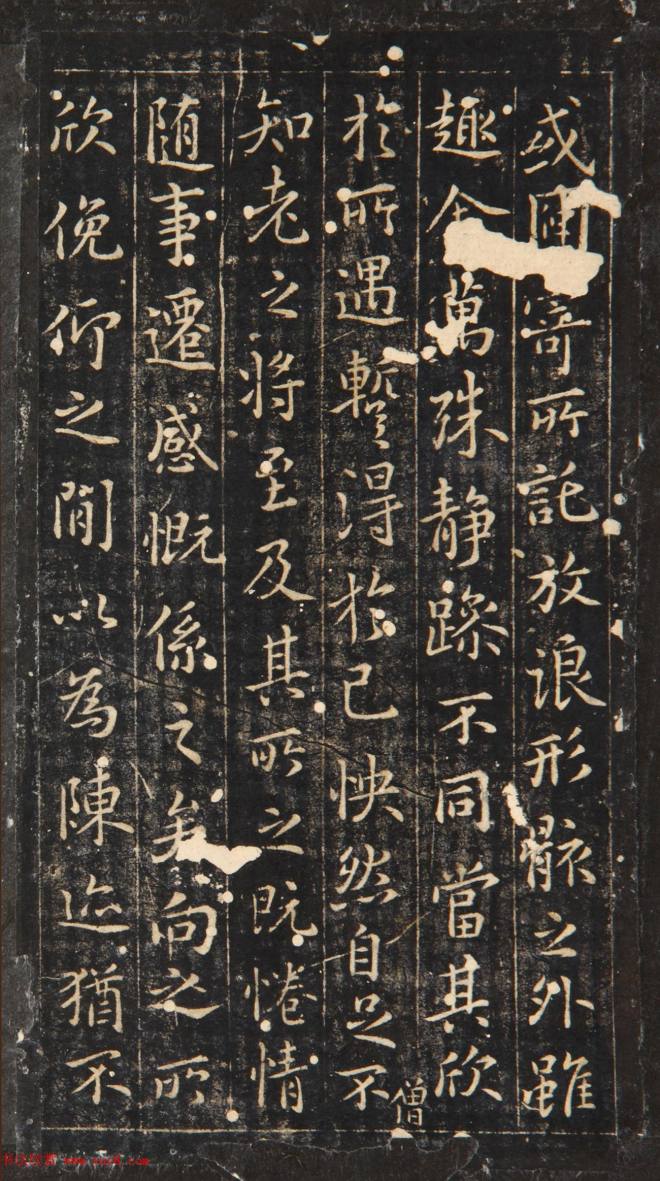 或因寄所託放浪形骸之外雖
趣舍萬殊静躁不同當其欣
於所遇暫得於己怏然自足不
僧
知老之將至及其所之既惓情
随事遷感慨係之矣向之所
欣俛仰之閒以為陳迹猶不